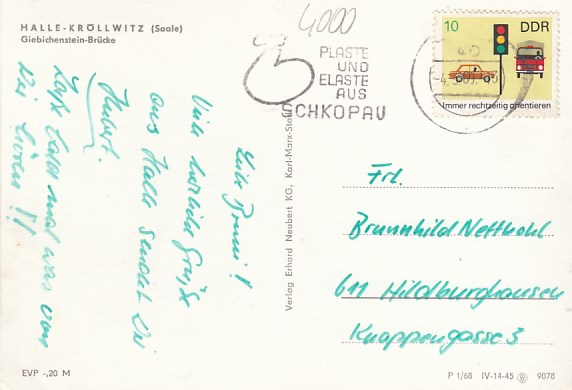 HALLE-KRÖLLWITZ (Saale)
Giebichenstein-Brücke
4000
PLASTE
UND
ELASTE
AUS
SCHKOPAU
40
10 DDR
Immer rechtzeitig orientieren
Liebe Bruni!
Viele herzliche Grüße
aus Halle sendet Dir
Hubert.
Laß bald mal was von
Dir hören!!
Verlag Erhard Neubert KG, Karl-Marx-Stadt
Frl.
Brunnhild Nettkohl
611 Hildburghausen
Knappengasse 3
EVP -,20 M
P 1/68 IV-14-45 9078